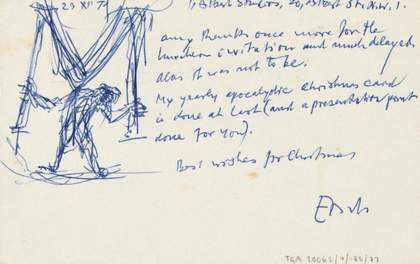 23 XII
Many thanks once more for the
luncheon invitation and much delayed.
alas it was not to be.
My yearly apocalyptic Christmas card
is done at last (and a presentation print
done for you).
Best wishes for Christmas
TGA